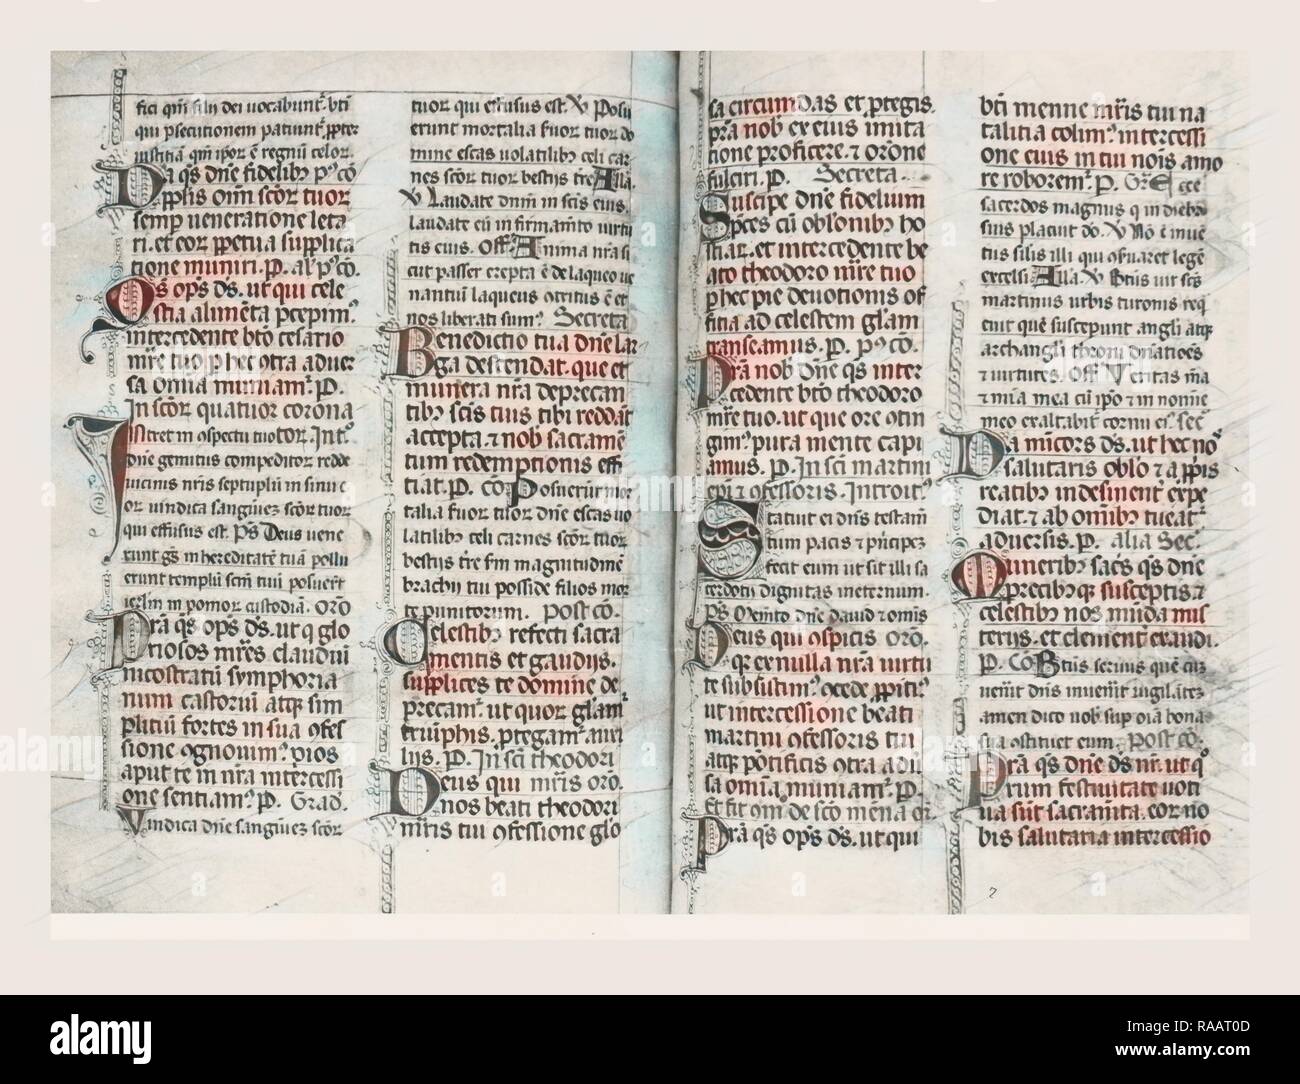 fici qm̄ filii dei uocabunt᷑. btī
qui ꝑsecutionem patiunt᷑ ꝓpter
iustitiā qm̄ ip̄oꝝ ē regnū celoꝝ.
Da qs̄ dn̄e fidelibꝫ pꝰ cō
ꝓplīs om̄ scōꝝ tuoꝝ
semꝑ ueneratione leta
ri. et eoꝝ ꝑpetua supplica
tione muniri. P. al' pꝰ cō.
Os̄ ops̄ ds̄. ut qui cele
stia alimēta pcepimꝰ
intercedente btō cesario
mr̄e tuo ꝑ hec cōtra aduer
sa omīa muniamꝰ. P.
In scōꝝ quatuor corona
Intret in ɔspectu tuo toꝝ. Intꝰ.
dn̄e gemitus compeditoꝝ redde
uicinis nr̄is septuplū in sinu e
oꝝ uindica sanguinez scōꝝ tuoꝝ
qui effusus est. Ps̄ Deus uene
runt gn̄s in hereditatē tuā pollu
erunt templū scm̄ tuū posuer̄t
ierlm̄ in pomoꝝ custodiā. Orō
Pra qs̄ ops̄ ds̄. ut q̄ glo
riosos mr̄es claudiū
nicostratū symphoria
num castoriū atqꝫ sim
plitiū fortes in sua ɔfes
sione ɔgnouimꝰ. pios
aput te in nr̄a intercessi
one sentiamꝰ. P. Grad'.
Vindica dn̄e sanguinez scōꝝ
tuoꝝ qui effusus est. ℣ Posu
erunt mortalia suoꝝ tuoꝝ do
mine escas uolatilibꝫ celi car
nes scōꝝ tuoꝝ bestijs tr̄e Alla.
℣ Laudate dn̄m in scīs eius.
laudate eū in firmamēto uirtu
tis eius. Off̄. Anima nr̄a si
cut passer erepta ē de laqueo ue
nantiū laqueus ɔtritus ē et
nos liberati sumꝰ. Secreta
Benedictio tua dn̄e lar
ga descendat. que et
munera nr̄a deprecan
tibꝫ scīs tuis tibi reddat
accepta. ⁊ nob̄ sacramē
tum redemptionis effi
tiat. P. Cō Posuerūt mor
talia suoꝝ tuoꝝ dn̄e escas uo
latilibꝫ celi carnes scōꝝ tuoꝝ
bestijs tr̄e ſm magnitudinē
brachij tui posside filios mor
te punitorum. Post cō.
Celestibꝫ refecti sacra
mentis et gaudijs.
supplices te domine de
precamꝰ. ut quoꝝ glīam̄
triūphis. ꝓtegamꝰ auxi
lijs. P. In scī theodori
Deus qui mr̄is orō.
nos beati theodori
mr̄is tui ɔfessione glo
sa circumdas et ꝓtegis.
pr̄a nob̄ ex eius imita
tione proficere. ⁊ or̄one
fulciri. P. Secreta.
Suscipe dn̄e fidelium
preces cū oblōnibꝫ ho
stiaꝝ. et intercedente be
ato theodoro mr̄e tuo
ꝑ hec pie deuotionis of
fitia ad celestem gl̄am
transeamus. P. pꝰ cō.
Pra nob̄ dn̄e qs̄ inter
cedente btō theodoro
mr̄e tuo. ut que ore ɔtin
gimꝰ. pura mente capi
amus. P. In scī martini
epī ⁊ ɔfessoris. Introitꝰ.
Statuit ei dn̄s testam̄
tum pacis ⁊ prīcipez
fecit eum ut sit illi sa
cerdotij dignitas ineternum.
Ps̄ Memēto dn̄e dauid ⁊ om̄is
Deus qui ɔspicis orō.
qꝫ ex nulla nr̄a uirtu
te subsistimꝰ. ɔcede ꝓpitiꝰ
ut intercessione beati
martini ɔfessoris tui
atqꝫ pōtificis ɔtra adū
sa omīa muniamꝰ. P.
Et fit om̄ de scō menā or̄.
Pra qs̄ ops̄ ds̄. ut qui
btī menne mr̄is tui na
talitia colimꝰ. intercessi
one eius in tui nōis amo
re roboremꝰ. P. Gr̄ Ecce
sacerdos magnus q̄ in diebꝫ
suis placuit do. ℣ Nō ē inuē
tus similis illi qui ɔseruaret legē
excelsi. Alla. ℣ Btūs uir scs̄
martinus urbis turonis req̄
euit quē susceperunt angli atqꝫ
archangli throni dn̄atioēs
⁊ uirtutes. Off̄ Veritas mea
⁊ mīa mea cū ip̄o ⁊ in nomīe
meo exaltabit᷑ cornu ei. Sec̄
Da mīcors ds̄. ut hec nos
salutaris oblō ⁊ a ꝓpriis
reatibꝫ indesinent᷑ expe
diat. ⁊ ab om̄ibꝫ tueat᷑
aduersis. P. alia Sec.
Muneribꝫ sac̄s qs̄ dn̄e
precibꝫqꝫ susceptis ⁊
celestibꝫ nos mūda mis
terijs. et clement᷑ exaudi.
P. Cō Btūs seruus quē cuz
uenīt dn̄s inuenīt uigilātez
amen dico uob̄ sup oīa bona
sua ɔstituet eum. Post cō.
Pra qs̄ dn̄e ds̄ nr̄. ut qꝰ
rum festiuitate uoti
ua sūt sacramīta. eoꝝ nō
bis salutaria intercessio
7
alamy
Image ID: RAAT0D
www.alamy.com